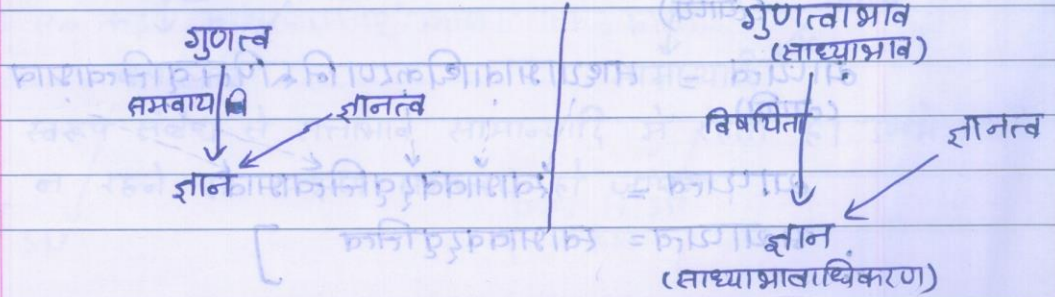 गुणत्व
समवाय
ज्ञानत्व
ज्ञान
गुणत्वाभाव
(साध्याभाव)
विषयिता
ज्ञानत्व
ज्ञान
(साध्याभावाधिकरण)